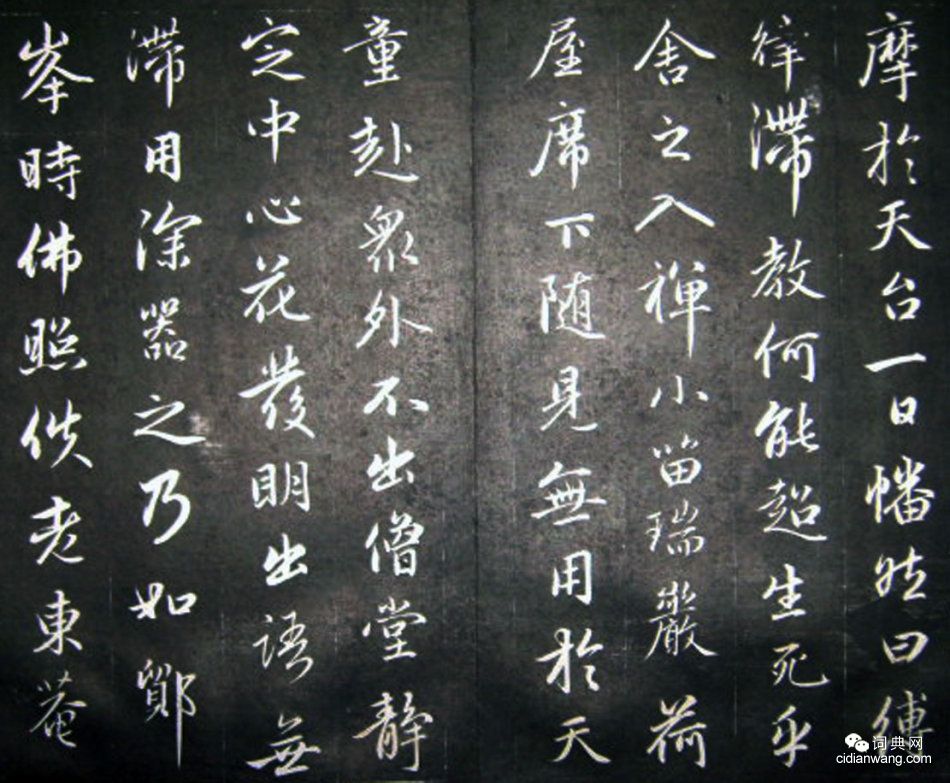 摩於天台一日幡然曰縛
律滯教何能超生死乎
舍之入禪小留瑞巖荷
屋席下随見無用於天
童赴衆外不出僧堂靜
定中心花發明出語無
滯用深器之乃如鄮
峯時佛照佚老東菴
词典网
cidianwang.com